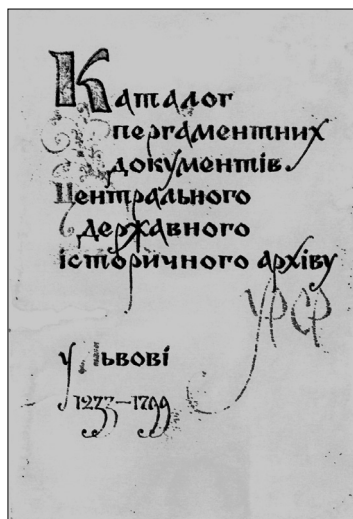 Каталог
пергаментних
документів
Центрального
державного
історичного архіву
УРСР
у Львові
1233–1799